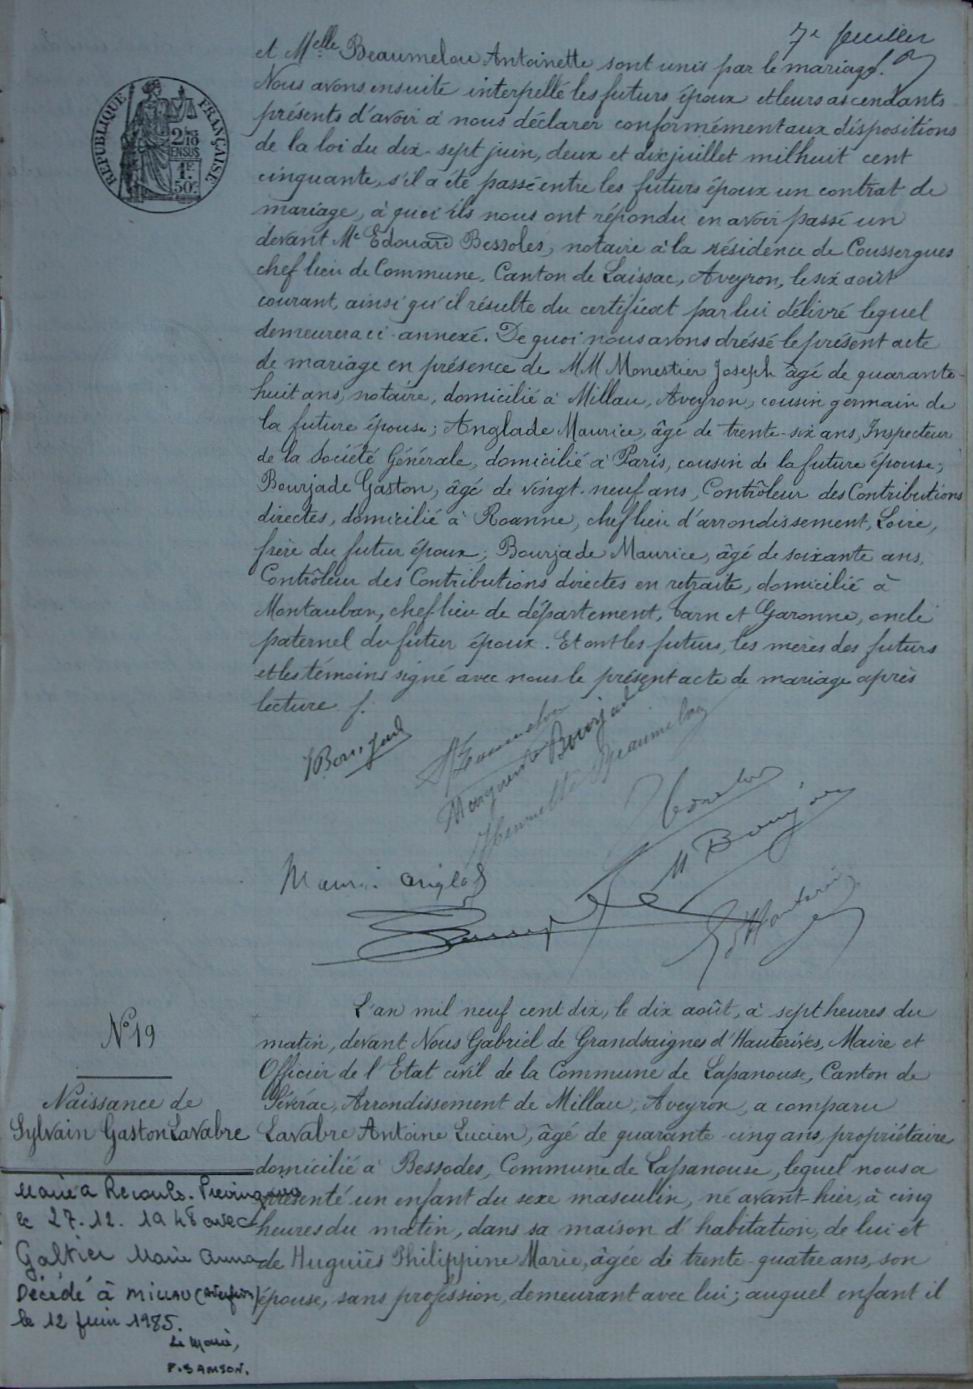 7e feuillet
et Melle Beaumelou Antoinette sont unis par le mariage.
Nous avons ensuite interpellé les futurs époux et leurs ascendants
présents d'avoir à nous déclarer conformément aux dispositions
de la loi du dix-sept juin, deux et dix juillet mil huit cent
cinquante, s'il a été passé entre les futurs époux un contrat de
mariage, à quoi ils nous ont répondu en avoir passé un
devant Me Edouard Bessoles, notaire à la résidence de Coussergues
chef lieu de Commune, Canton de Laissac, Aveyron, le six août
courant, ainsi qu'il résulte du certificat par lui délivré lequel
demeurera ci-annexé. De quoi nous avons dréssé le présent acte
de mariage en présence de MM Monestier Joseph âgé de quarante-
huit ans, notaire, domicilié à Millau, Aveyron, cousin germain de
la future épouse; Anglade Maurice, âgé de trente-six ans, Inspecteur
de la Société Générale, domicilié à Paris, cousin de la future épouse;
Bourjade Gaston, âgé de vingt-neuf ans, Contrôleur des Contributions
directes, domicilié à Roanne, chef lieu d'arrondissement, Loire,
frère du futur époux; Bourjade Maurice, âgé de soixante ans,
Contrôleur des Contributions directes en retraite, domicilié à
Montauban, chef lieu de département, Tarn et Garonne, oncle
paternel du futur époux. Et ont les futurs, les mères des futurs
et les témoins signé avec nous le présent acte de mariage après
lecture.
RÉPUBLIQUE FRANÇAISE
2/10
EN SUS
1F
50C
A Beaumelou
Marguerite Bourjade
Henriette Beaumelou
M Bourjade
Mauri. Anglad
N° 19
Naissance de
Sylvain Gaston Lavabre
L'an mil neuf cent dix, le dix août, à sept heures du
matin, devant Nous Gabriel de Grandsaignes d'Hauterives, Maire et
Officier de l'Etat civil de la Commune de Lapanouse, Canton de
Sévérac, Arrondissement de Millau, Aveyron, a comparu
Lavabre Antoine Lucien, âgé de quarante-cinq ans, propriétaire
domicilié à Bessodes, Commune de Lapanouse, lequel nous a
présenté un enfant du sexe masculin, né avant-hier, à cinq
heures du matin, dans sa maison d'habitation, de lui et
de Huguiès Philippine Marie, âgée de trente-quatre ans, son
épouse, sans profession, demeurant avec lui; auquel enfant il
Marié à Recoules-Prévinquières
le 27.12.1948 avec
Galtier Marie Anna
Décédé à MILLAU (Aveyron)
le 12 juin 1985.
Le Maire,
P. SAMSON.